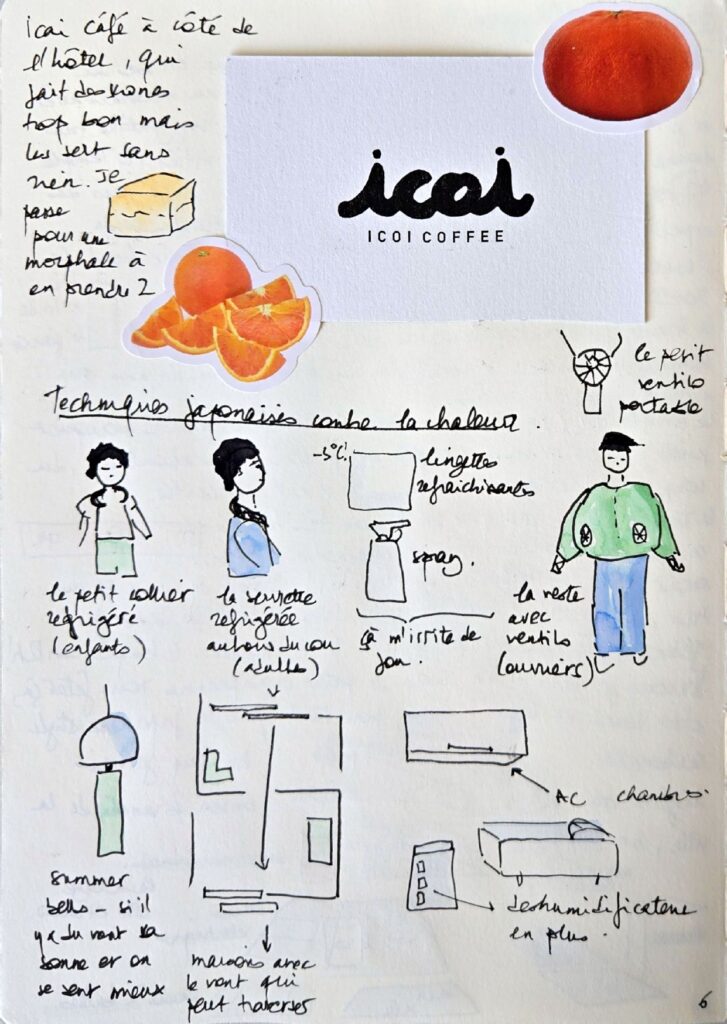 icoi café à côté de
l'hôtel, qui
fait des scones
trop bon mais
les sert sans
rien. Je
passe
pour une
morphale à
en prendre 2
icoi
ICOI COFFEE
le petit
ventilo
portable
Techniques japonaises contre la chaleur.
le petit collier
réfrigéré
(enfants)
la serviette
réfrigérée
autour du cou
(adultes)
-5°C!
lingettes
rafraichissantes
spray.
çà m'irrite de
fou.
la veste
avec
ventilo
(ouvriers)
summer
bells - si il
y a du vent sa
sonne et on
se sent mieux
maisons avec
le vent qui
peut traverser
AC chambre.
deshumidificateur
en plus.
6